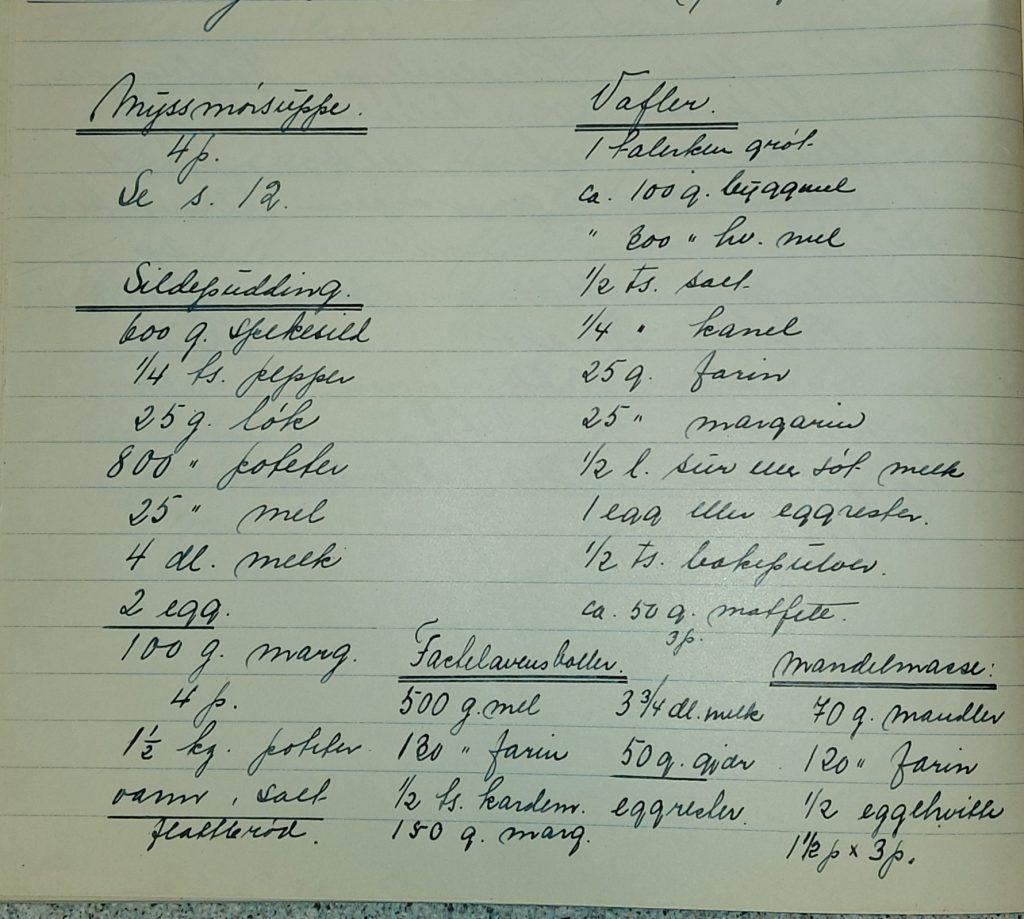 Myssmörsuppe.
4 p.
Se s. 12.
Sildepudding.
600 g. spekesild
1/4 ts. pepper
25 g. lök
800 " poteter
25 " mel
4 dl. melk
2 egg.
100 g. marg.
4 p.
1 1/2 kg. poteter
vann, salt
flattbröd.
Vafler.
1 talerken gröt
ca. 100 g. byggmel
" 300 " hv. mel
1/2 ts. salt
1/4 " kanel
25 g. farin
25 " margarin
1/2 l. sur eller söt melk
1 egg eller eggrester.
1/2 ts. bakepulver.
ca. 50 g. matfett.
3 p.
Fastelavensboller.
500 g. mel
130 " farin
1/2 ts. kardem.
150 g. marg.
3 3/4 dl. melk
50 g. gjær
eggrester.
Mandelmasse:
70 g. mandler
120 " farin
1/2 eggehvitte
1 1/2 p x 3 p.